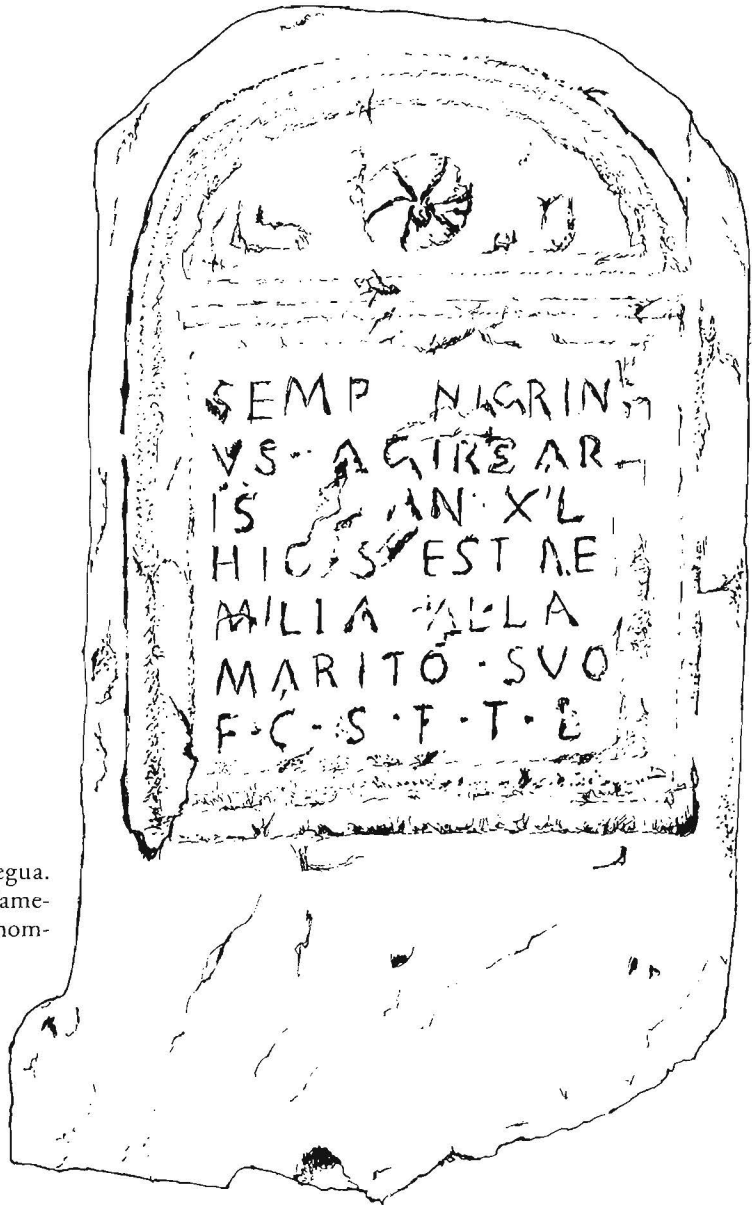 SEMP NIGRIN
VS · AGIRSAR
IS AN · XL
HIC · S EST AE
MILIA ALLA
MARITO · SVO
F · C · S · T · T · L
egua.
ame-
nom-